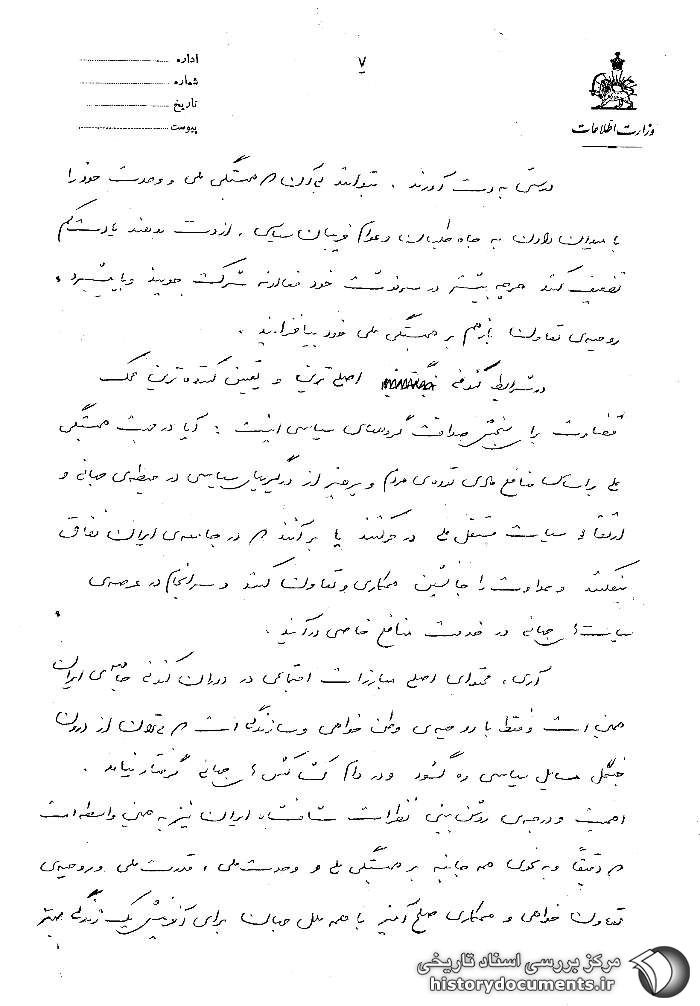 ۷
اداره
شماره
تاریخ
پیوست
وزارت اطلاعات
درستی به دست آورند. بتوانند بی‌آن که همبستگی ملی و وحدت خود را
با میدان دادن به جاه طلبان و عوام فریبان سیاسی، از دست بدهند یا دست‌کم
تضعیف کنند هرچه بیشتر در سرنوشت خود فعالانه شرکت جویند و با پیشبرد
روحیه‌ی تعاون باز هم بر همبستگی ملی خود بیافزایند.
در شرایط کنونی اصلی ترین و تعیین کننده ترین محک
قضاوت برای سنجش صداقت گروه‌های سیاسی اینست: آیا در جهت همبستگی
ملی بر اساس منافع مادی توده‌ی مردم و پرهیز از درگیریهای سیاسی در حیطه‌ی جهانی و
ارتقاء سیاست مستقل ملی در حرکتند یا برآنند که در جامعه‌ی ایران نفاق
بیفکنند و عداوت را جانشین همکاری و تعاون کنند و سرانجام در عرصه‌ی
سیاست‌های جهانی در خدمت منافع خاصی درآیند.
آری، محتوای اصلی مبارزات اجتماعی در دوران کنونی جامعه‌ی ایران
همین است و فقط با روحیه‌ی وطن خواهی و سازندگی است که می‌توان از درون
جنگل مسایل سیاسی ره گشود و در دام کشاکش‌های جهانی گرفتار نیامد.
اهمیت و درجه‌ی روشن بینی نظرات شاهنشاه ایران نیز به همین واسطه است
که دقیقاً و به نحوی همه جانبه بر همبستگی ملی و وحدت ملی، قدرت ملی و روحیه‌ی
تعاون خواهی و همکاری صلح آمیز با همه ملل جهان برای آفرینش یک زندگی بهتر
مرکز بررسی اسناد تاریخی
historydocuments.ir